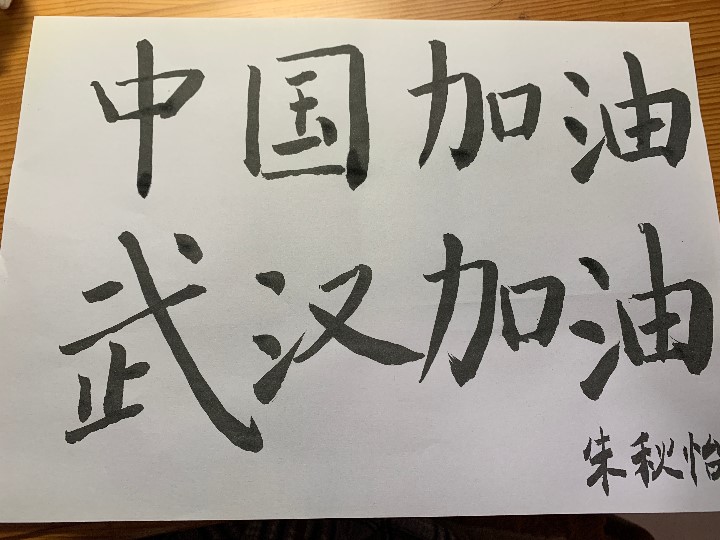 中国加油
武汉加油
朱秋怡